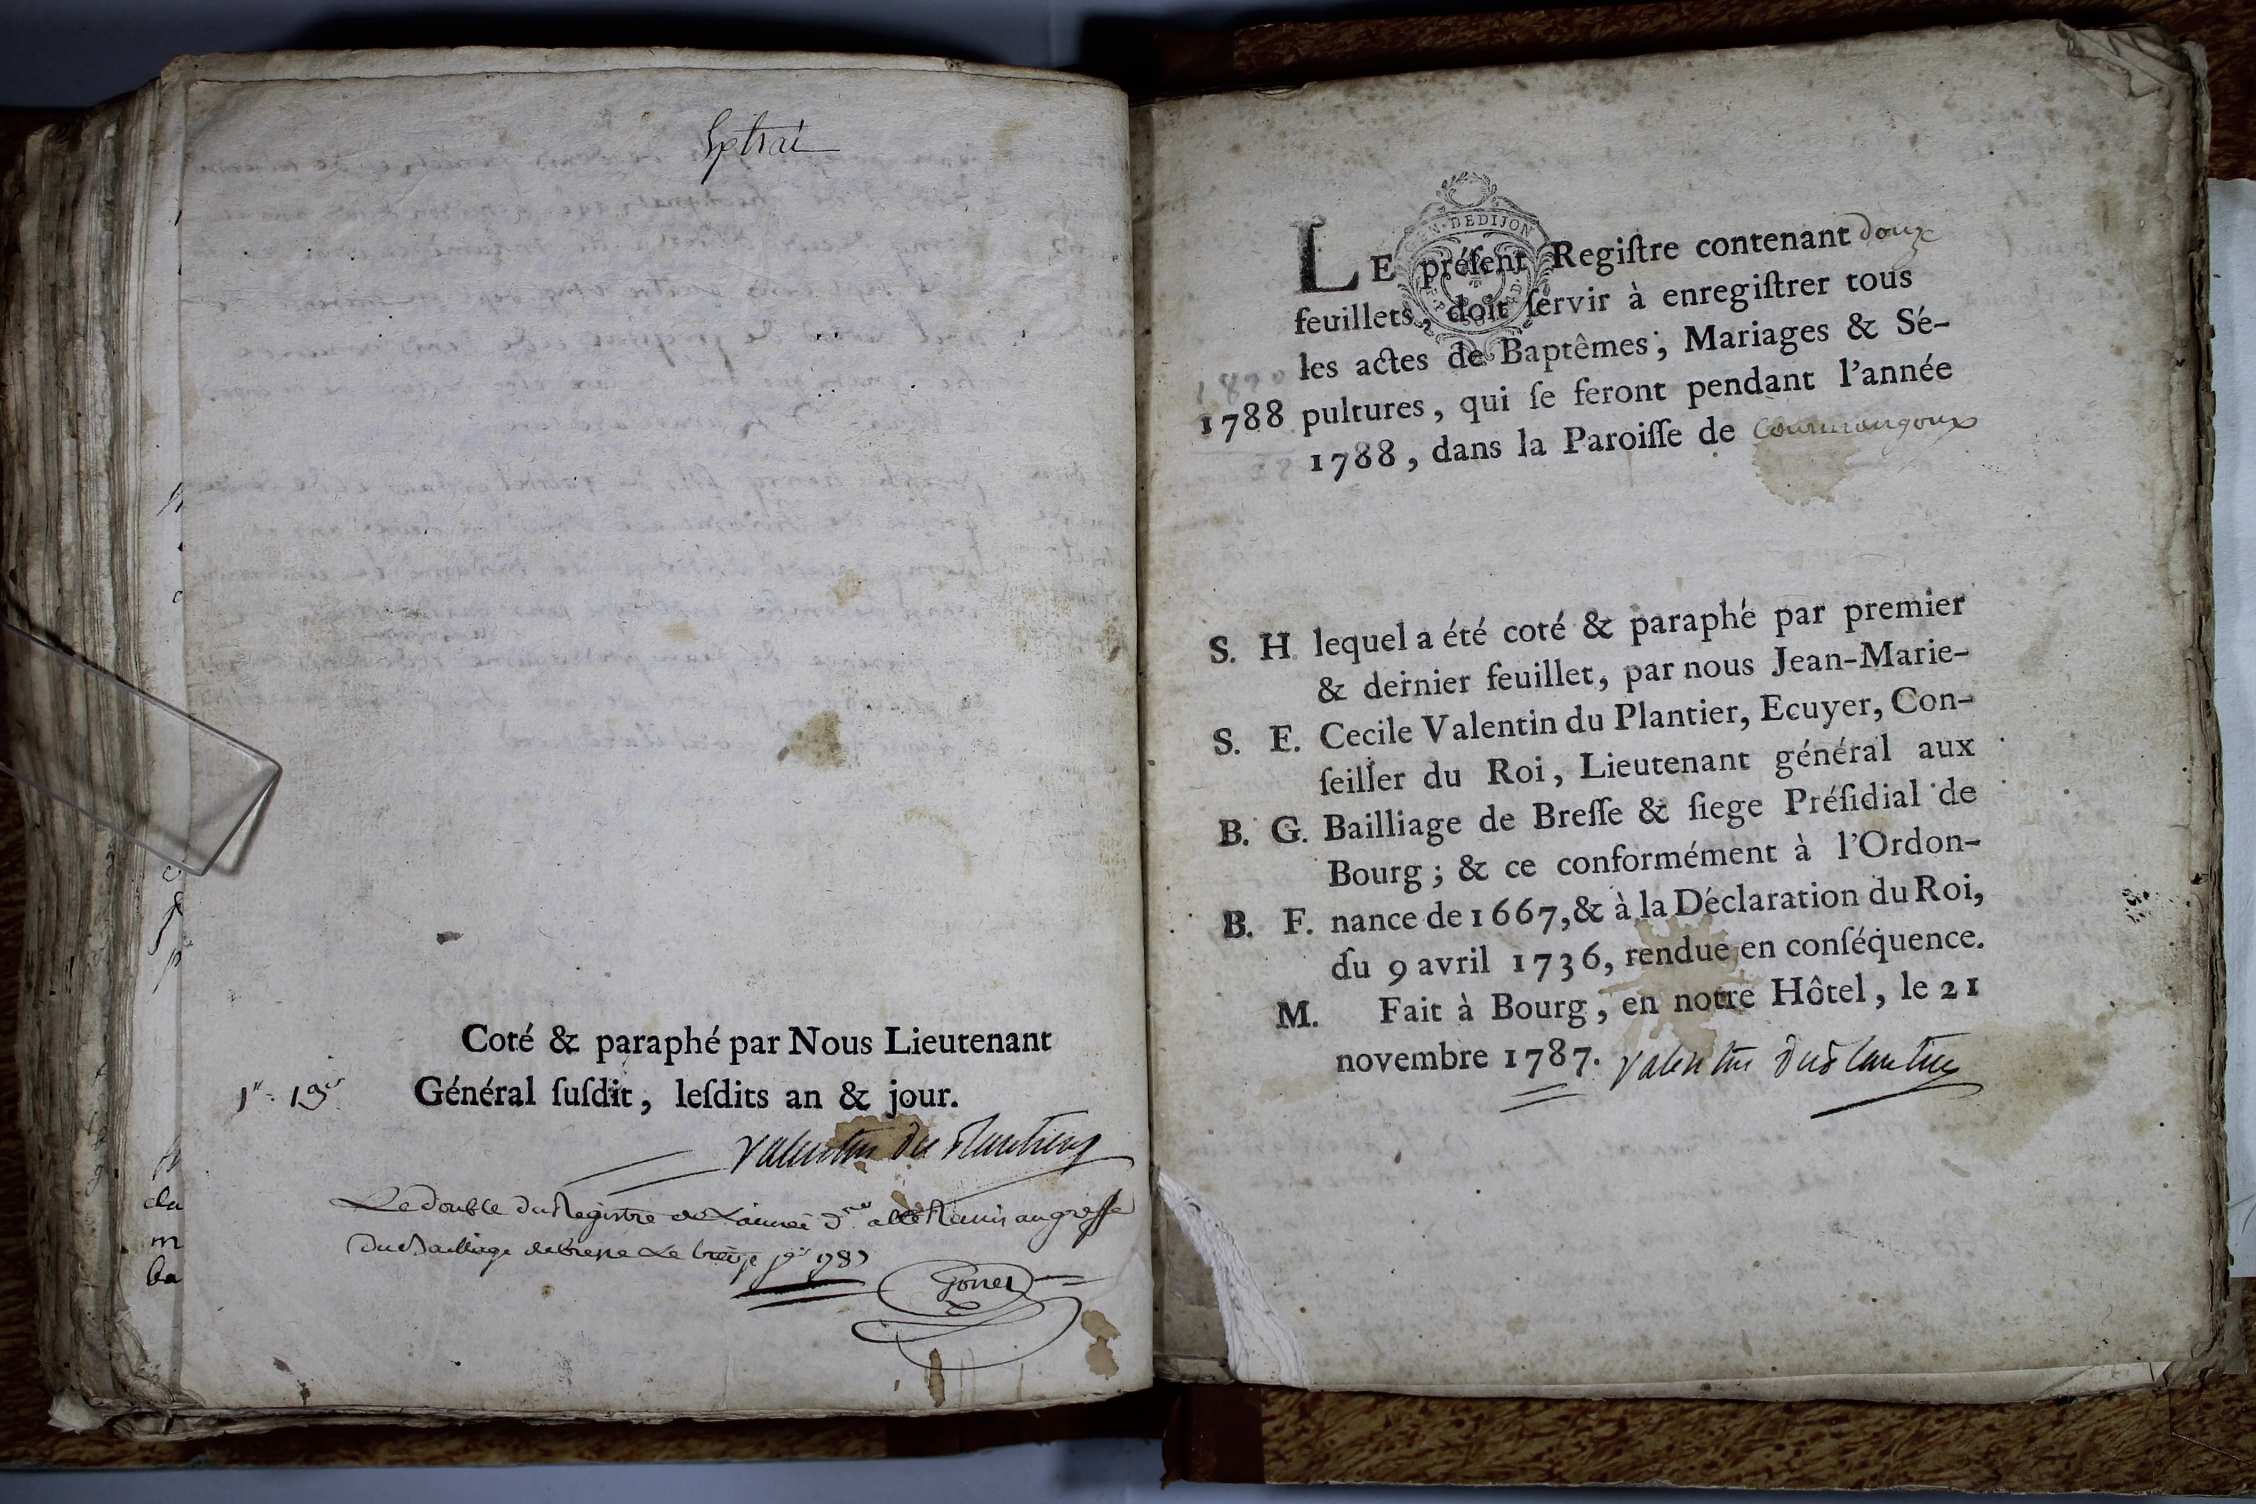 Coté & paraphé par Nous Lieutenant
Général ſuſdit, leſdits an & jour.
Valentin du Plantier
Le double du Registre de L'année d.re a été Remis au greffe
du Bailliage de bresse Le
GEN. DE DIJON
LE préſent Regiſtre contenant douze
feuillets, doit ſervir à enregiſtrer tous
les actes de Baptêmes, Mariages & Sé-
1788 pultures, qui ſe feront pendant l'année
1788, dans la Paroiſſe de Courmangoux
S. H. lequel a été coté & paraphé par premier
& dernier feuillet, par nous Jean-Marie-
S. E. Cecile Valentin du Plantier, Ecuyer, Con-
ſeiller du Roi, Lieutenant général aux
B. G. Bailliage de Breſſe & ſiege Préſidial de
Bourg ; & ce conformément à l'Ordon-
B. F. nance de 1667, & à la Déclaration du Roi,
du 9 avril 1736, rendue en conſéquence.
M. Fait à Bourg, en notre Hôtel, le 21
novembre 1787. Valentin duPlantier